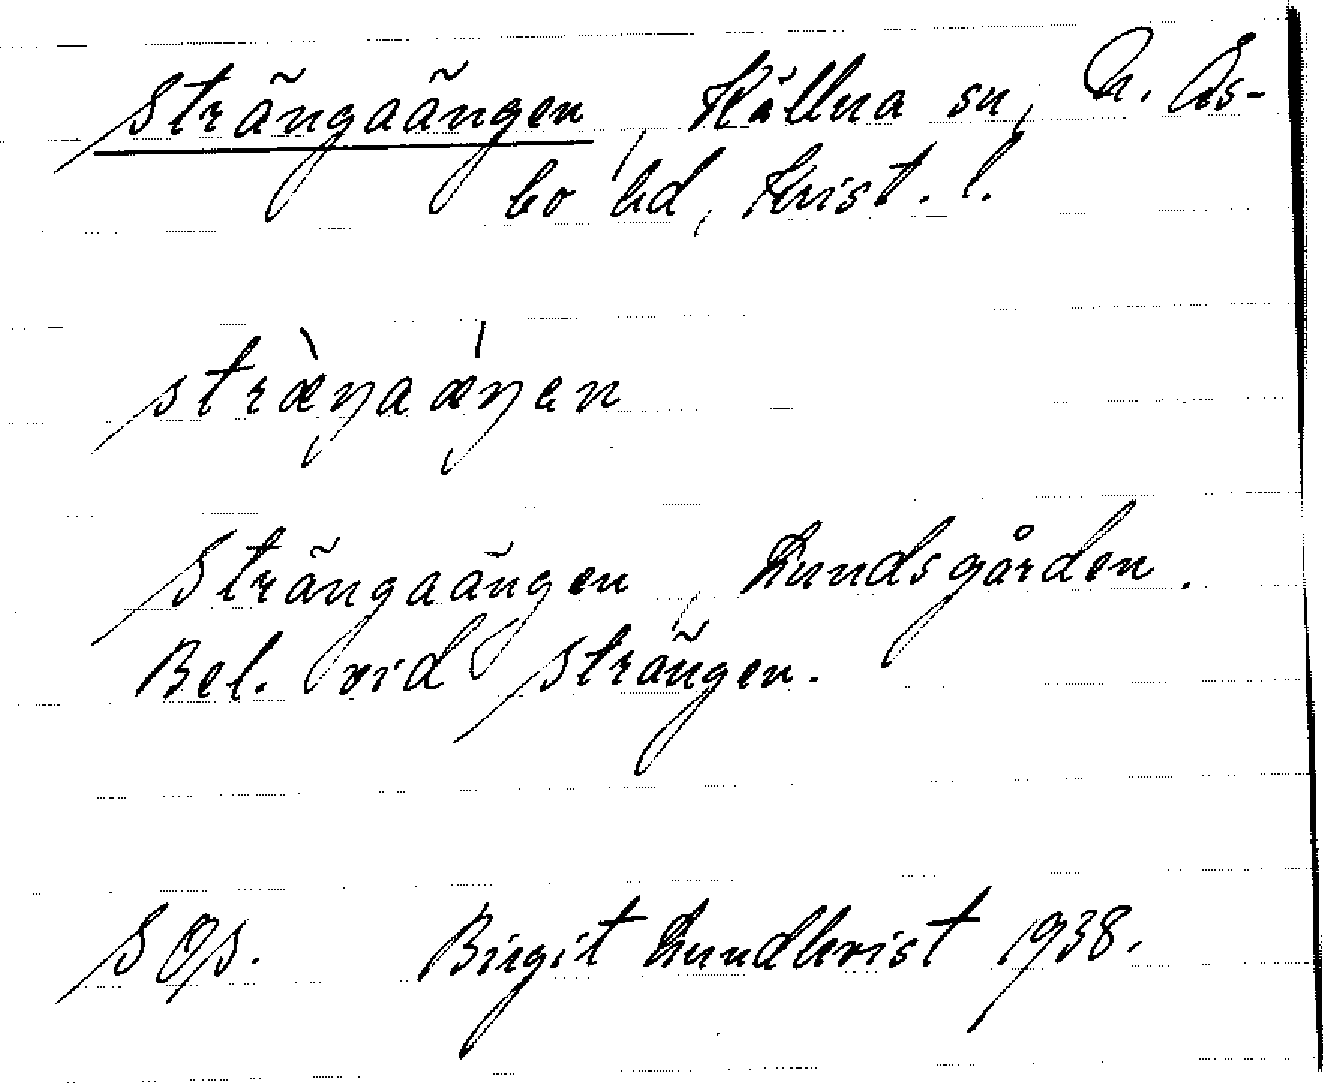 Strängaängen, Källna sn, N. Ås-
bo hd, Krist. l.
stræ̀ŋaæ̍ŋen
Strängaängen, Lundsgården.
Bel. vid Strängen.
S Ops. Birgit Lundkvist 1938.